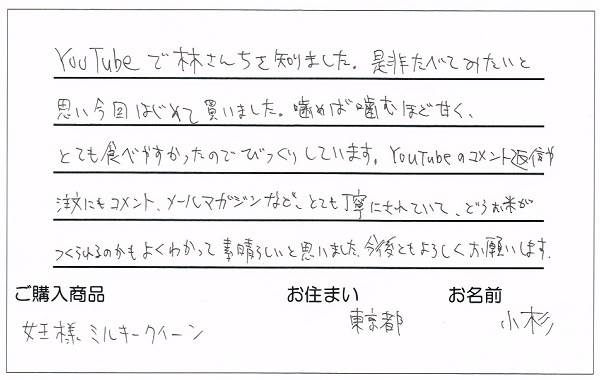 YouTubeで林さんちを知りました。是非たべてみたいと
思い今回はじめて買いました。噛めば噛むほど甘く、
とても食べやすかったのでびっくりしています。YouTubeのコメント返信や
注文にもコメント、メールマガジンなど、とても丁寧にされていて、どうお米が
つくられるのかもよくわかって素晴らしいと思いました。今後ともよろしくお願いします。
ご購入商品 お住まい お名前
女王様、ミルキークイーン 東京都 小杉